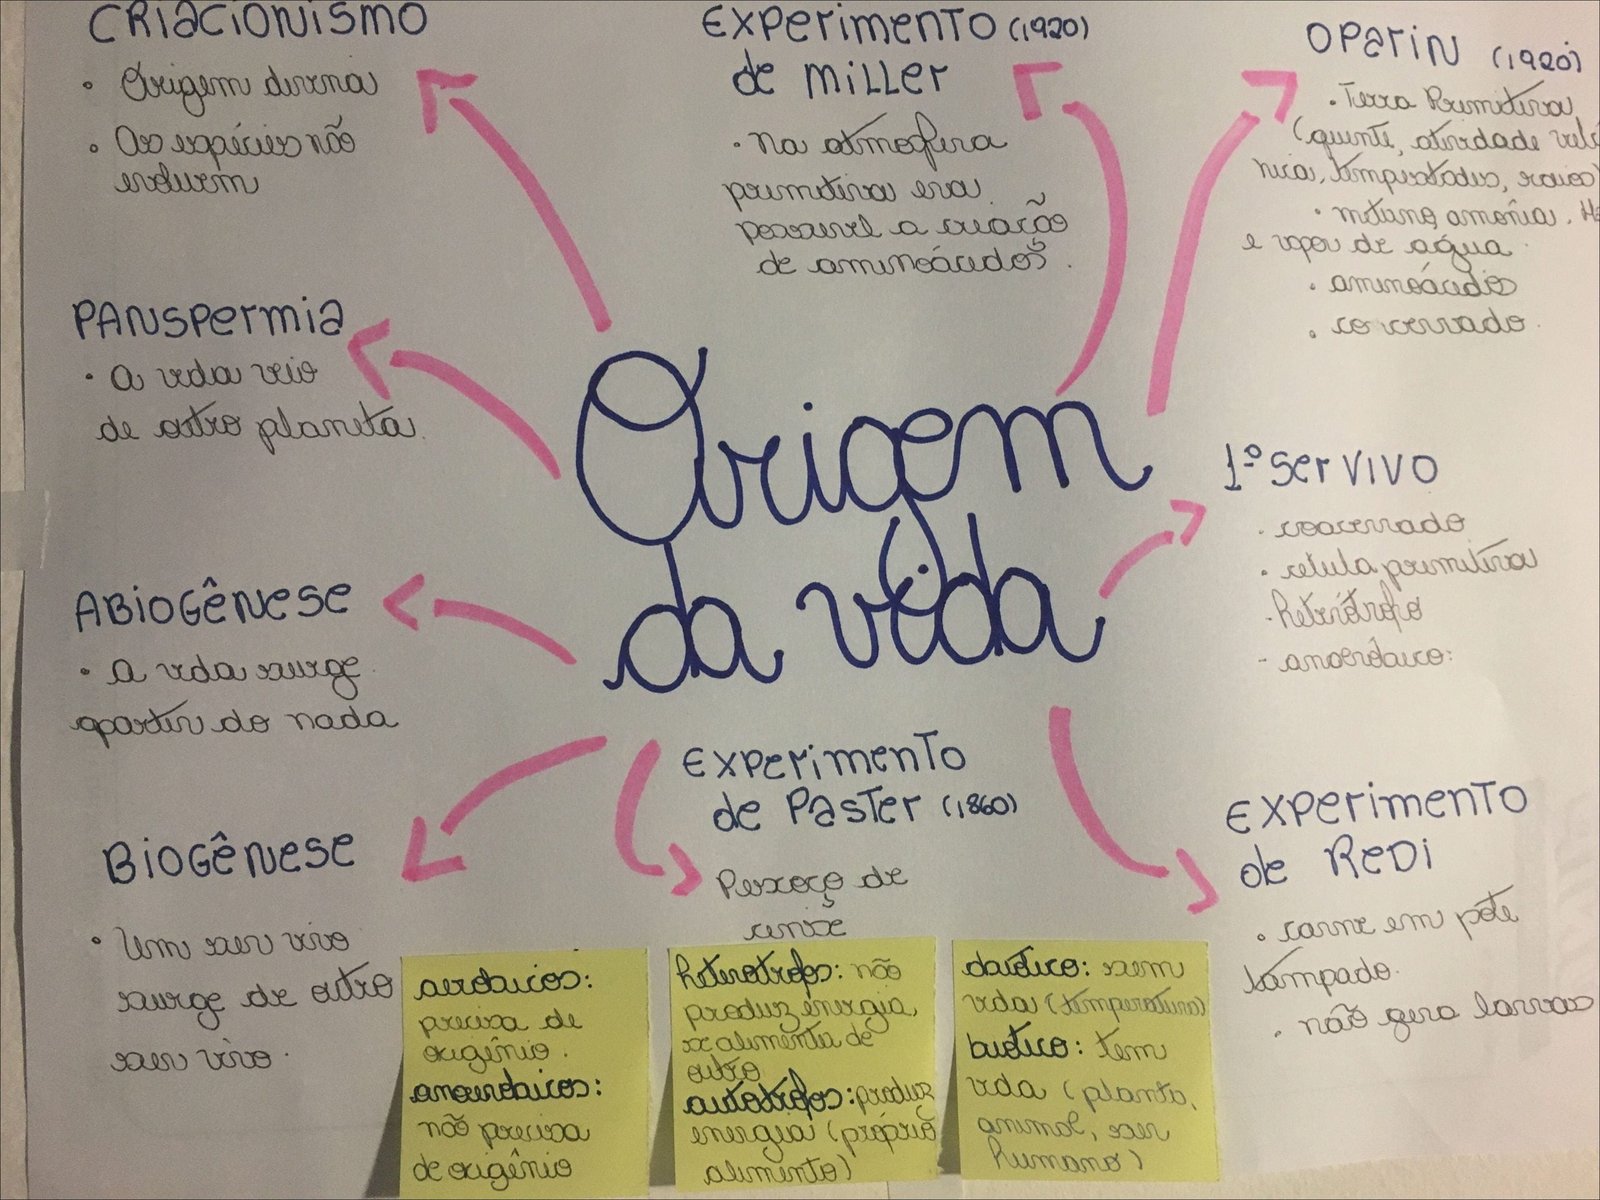 CRIACIONISMO
• Origem divina
• As espécies não
evoluem
PANSPERMIA
• A vida veio
de outro planeta.
ABIOGÊNESE
• A vida surge
apartir do nada
BIOGÊNESE
• Um ser vivo
surge de outro
ser vivo.
EXPERIMENTO (1920)
de MILLER
• Na atmosfera
primitiva era
possivel a criação
de aminoácidos.
Origem
da vida
EXPERIMENTO
de PASTER (1860)
Pescoço de
cisne
OPARIN (1920)
• Terra Primitiva
(quente, atividade vulcâ
nica, tempestades, raios)
• metano, amônia, H2
e vapor de água
• aminoácidos
• coacervado
1º ser VIVO
• coacervado
• célula primitiva
- heterótrofo
- anaeróbico:
EXPERIMENTO
de REDI
• carne em pote
tampado.
• não gera larvas
aeróbicos:
precisa de
oxigênio.
anaeróbicos:
não precisa
de oxigênio
heterótrofos: não
produz energia,
se alimenta de
outro
autótrofos: produz
energia (próprio
alimento)
abiótico: sem
vida (temperatura)
biótico: tem
vida (planta,
animal, ser
humano)